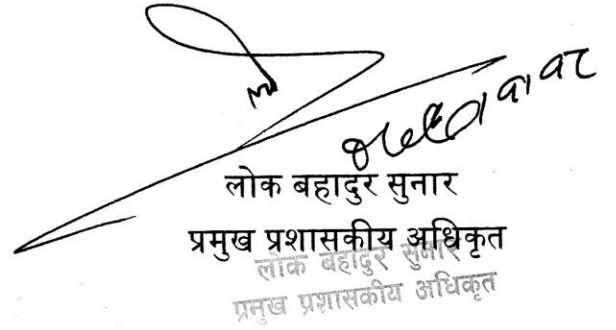 लोक बहादुर सुनार
प्रमुख प्रशासकीय अधिकृत
लोक बहादुर सुनार
प्रमुख प्रशासकीय अधिकृत